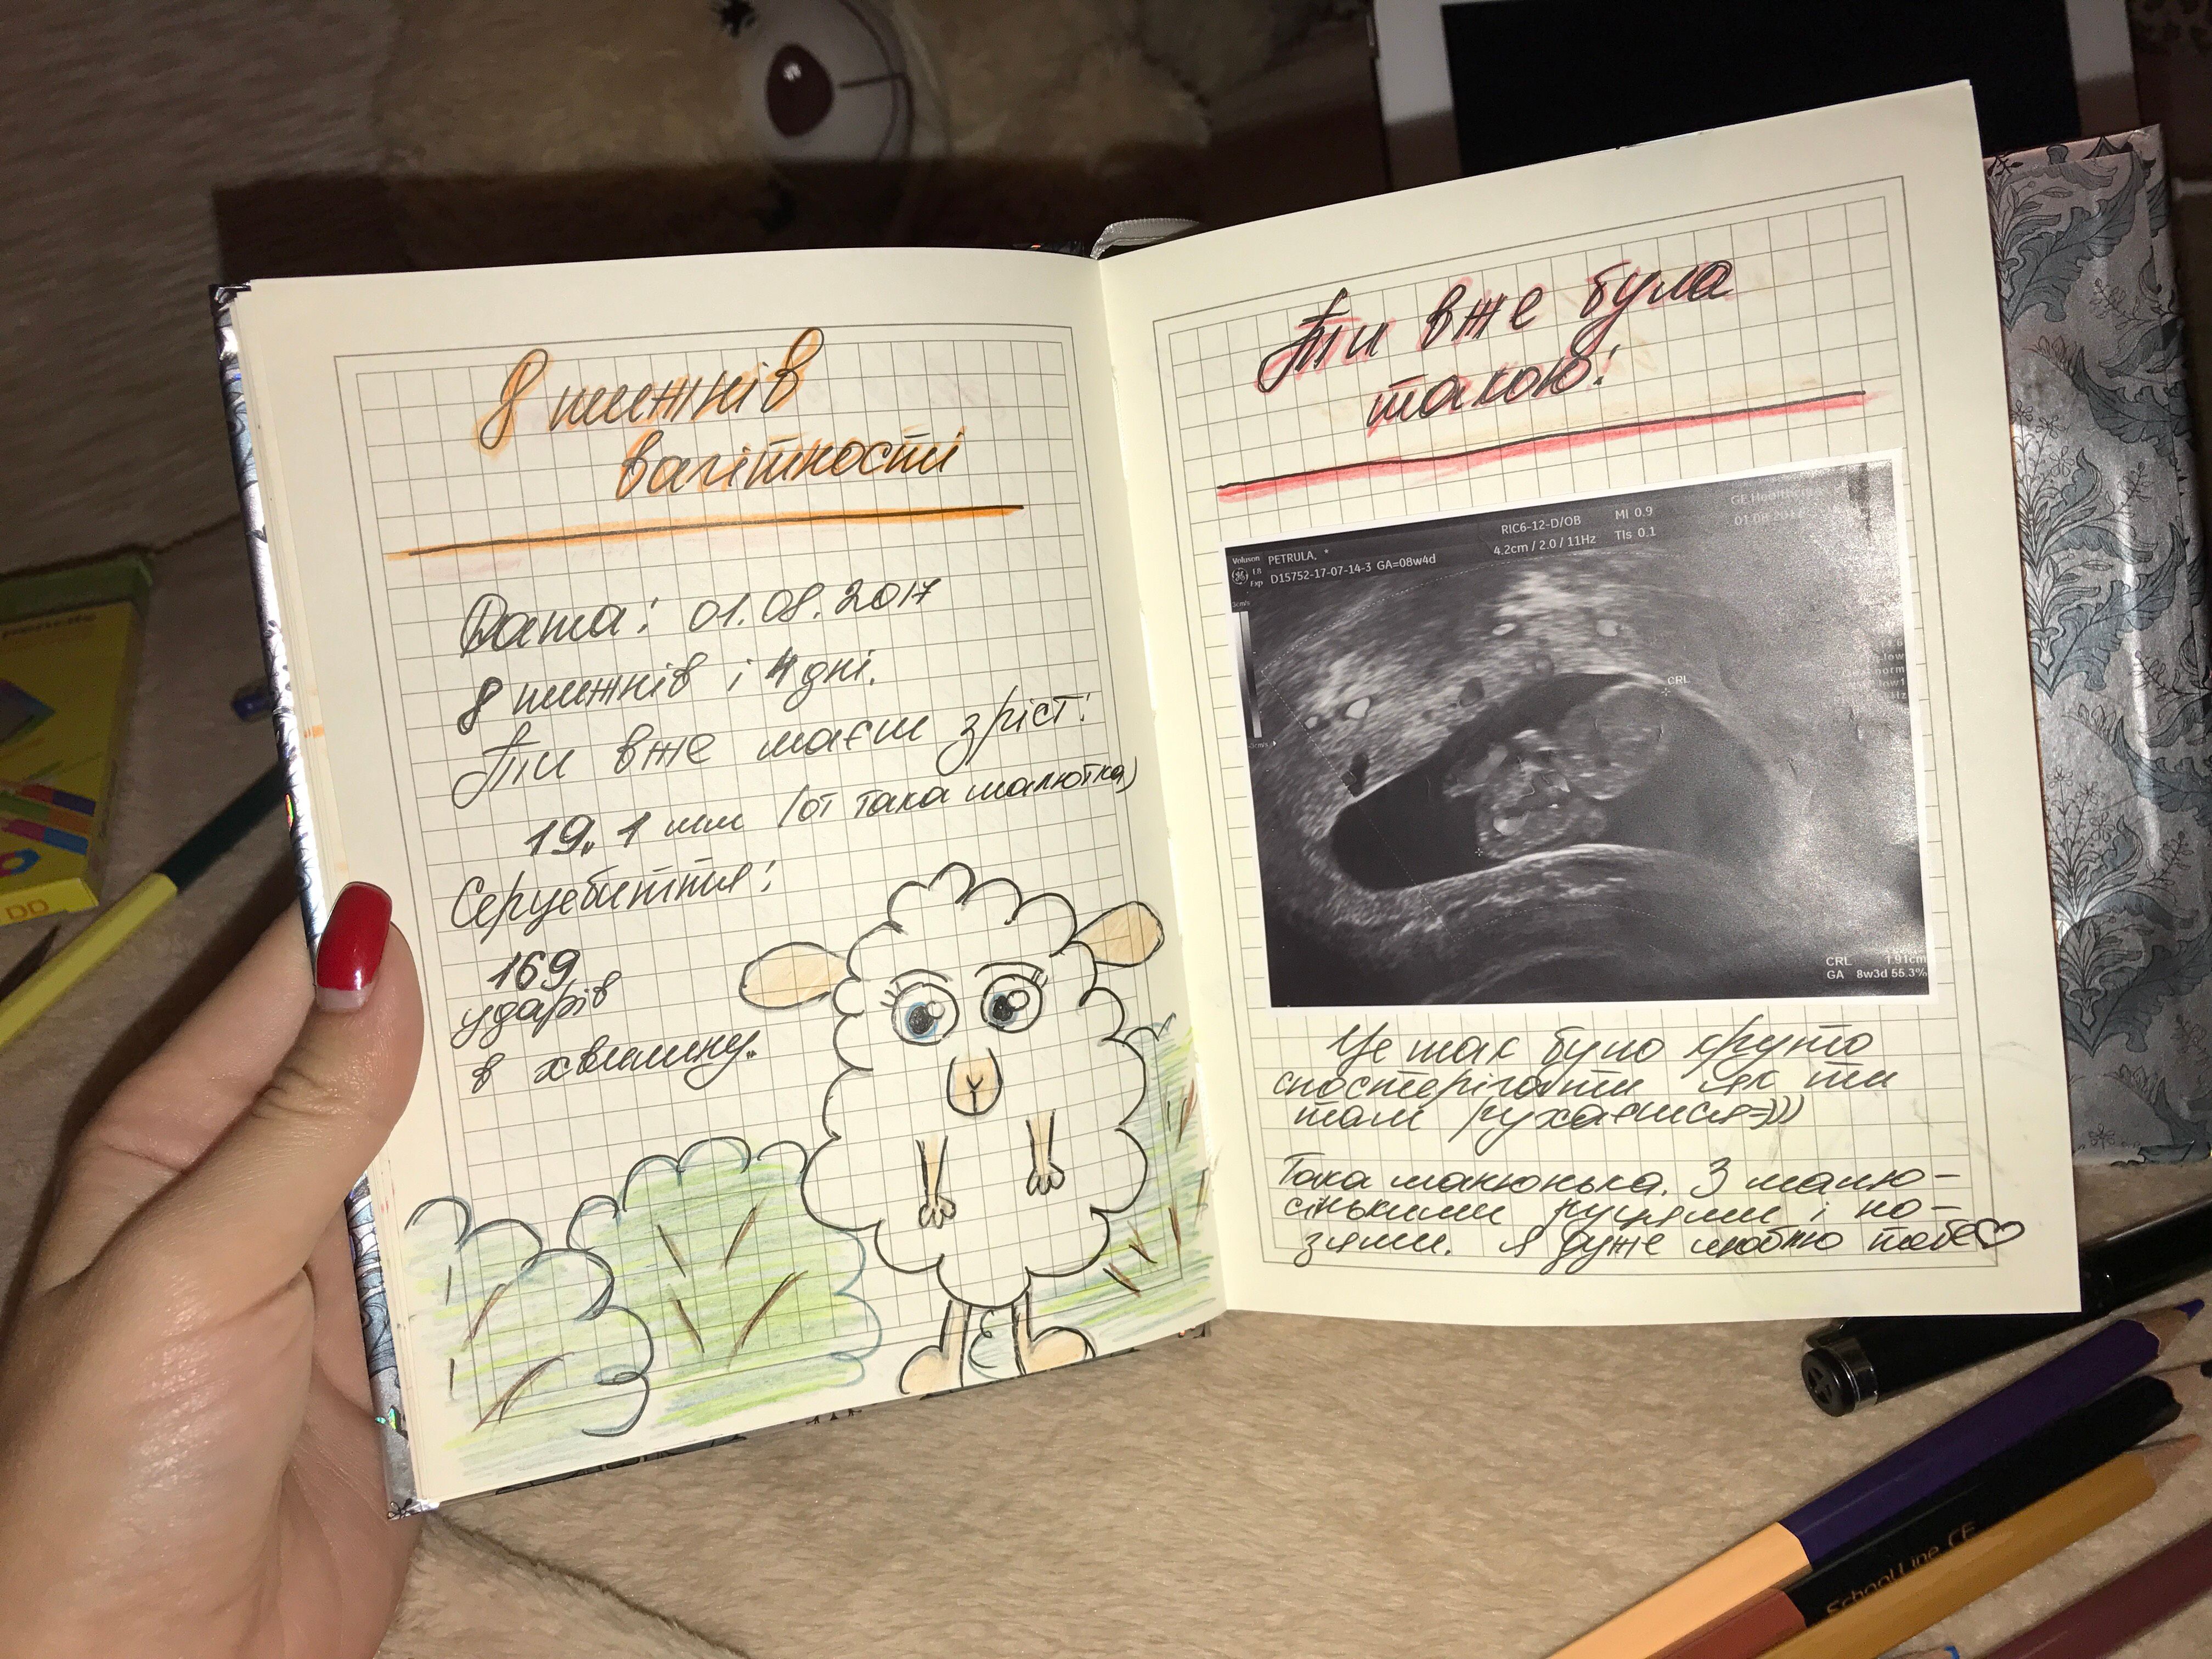 8 тижнів
вагітності
Дата: 01.08.2017
8 тижнів і 4 дні.
Ти вже маєш зріст:
19,1 мм (от така малютка)
Серцебиття:
169
ударів
в хвилину.
Ти вже була
такою!
Voluson
PETRULA, *
RIC6-12-D/OB
MI 0.9
GE Healthcare
D15752-17-07-14-3 GA=08w4d
4.2cm / 2.0 / 11Hz
TIs 0.1
01.08.2017
CRL
CRL 1.91cm
GA 8w3d 55.3%
Це так було круто
спостерігати як ти
там рухаєшся=)))
Така манюнька. З малю-
сінькими руцями і но-
зями. Я дуже люблю тебе♡
DD
School Line CE